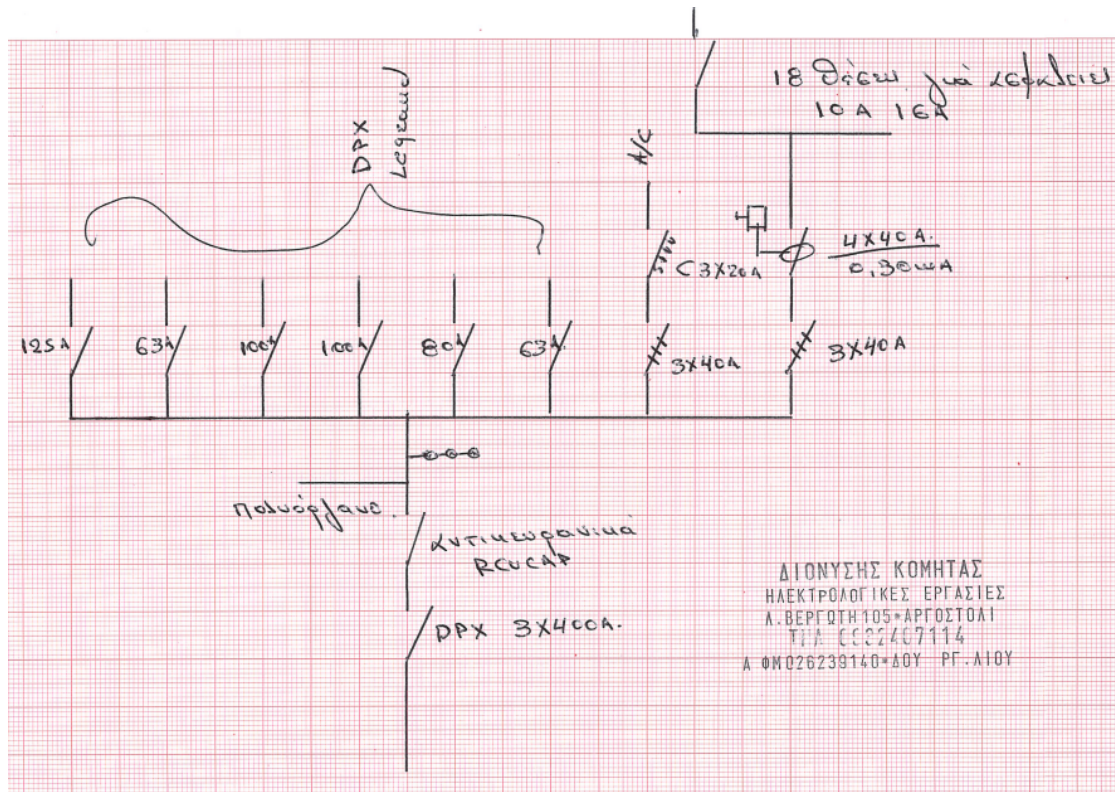 18 θέσεις για ασφάλειες
10A 16A
DPX
Legrand
A/C
4X40A.
0,30mA
C3X20A
125A
63A
100A
100A
80A
63A
3X40A
3X40A
Πολυόργανο.
Αντικεραυνικά
DPX 3X400A.
ΔΙΟΝΥΣΗΣ ΚΟΜΗΤΑΣ
ΗΛΕΚΤΡΟΛΟΓΙΚΕΣ ΕΡΓΑΣΙΕΣ
Λ.ΒΕΡΓΩΤΗ 105*ΑΡΓΟΣΤΟΛΙ
Α ΦΜ026239140*ΔΟΥ